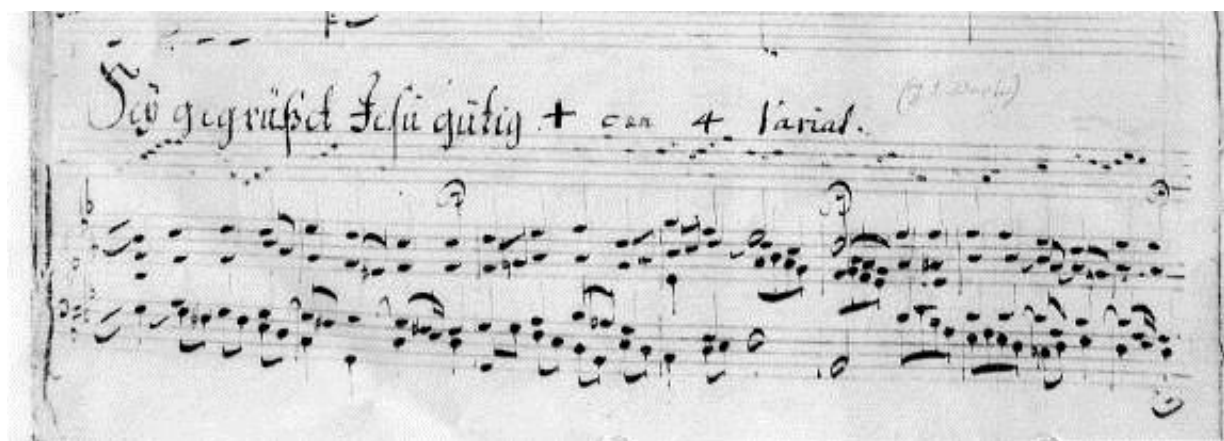 Seÿ gegrüßet Jesu gütig + con 4 Variat.